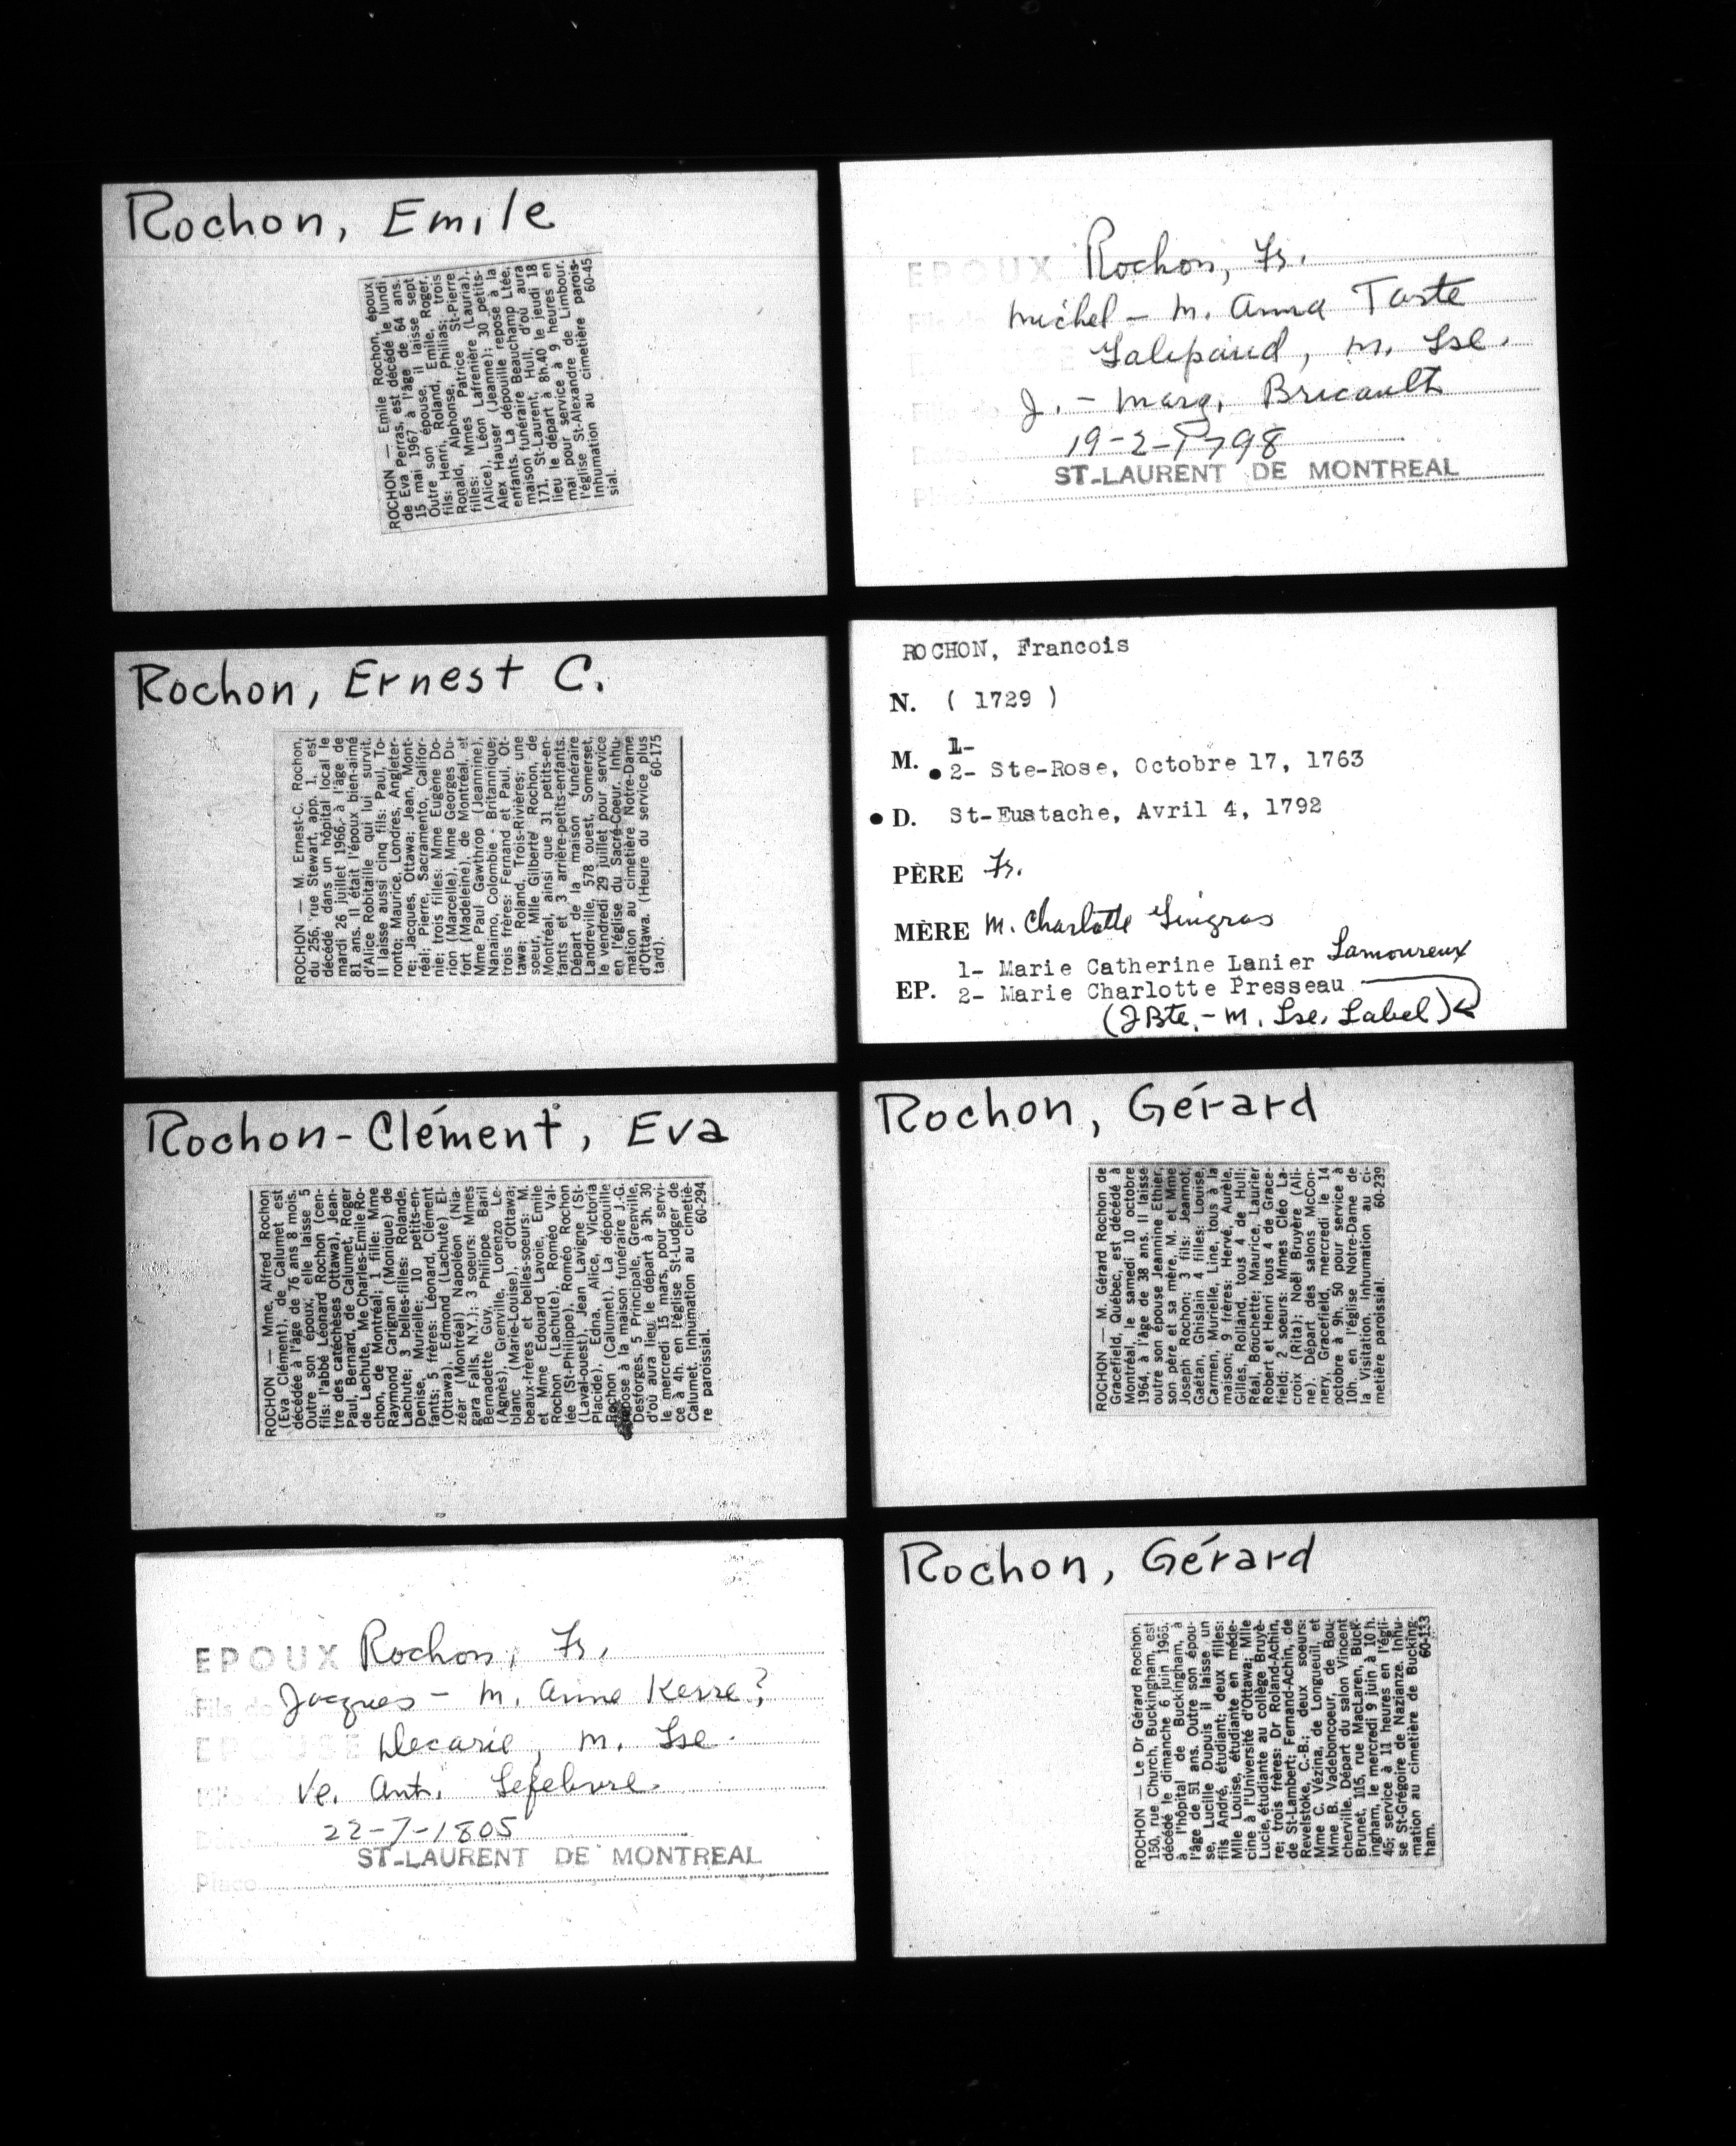 Rochon, Emile
ROCHON — Emile Rochon, époux
de Eva Perras, est décédé le lundi,
15 mai 1967 à l'âge de 64 ans.
Outre son épouse, il laisse sept
fils: Henri, Roland, Emile, Roger,
Ronald, Alphonse, Philias; trois
filles: Mmes Patrice St-Pierre
(Alice), Léon Lafrenière (Lauria),
Alex Hauser (Jeanne); 30 petits-
enfants. La dépouille repose à la
maison funéraire Beauchamp Ltée,
171, St-Laurent, Hull, d'où aura
lieu le départ à 8h.40 le jeudi 18
mai pour service à 9 heures en
l'église St-Alexandre de Limbour.
Inhumation au cimetière parois-
sial. 60-45
Rochon, Ernest C.
ROCHON — M. Ernest-C. Rochon,
du 256, rue Stewart, app. 1, est
décédé dans un hôpital local le
mardi 26 juillet 1966, à l'âge de
81 ans. Il était l'époux bien-aimé
d'Alice Robitaille qui lui survit.
Il laisse aussi cinq fils: Paul, To-
ronto; Maurice, Londres, Angleter-
re; Jacques, Ottawa; Jean, Mont-
réal; Pierre, Sacramento, Califor-
nie; trois filles: Mme Eugène Do-
rion (Marcelle), Mme Georges Du-
fort (Madeleine), de Montréal, et
Mme Paul Gawthrop (Jeannine),
Nanaimo, Colombie - Britannique;
trois frères: Fernand et Paul, Ot-
tawa; Roland, Trois-Rivières; une
soeur, Mlle Gilberte Rochon, de
Montréal, ainsi que 31 petits-en-
fants et 3 arrière-petits-enfants.
Départ de la maison funéraire
Landreville, 578 ouest, Somerset,
le vendredi 29 juillet pour service
en l'église du Sacré-Coeur. Inhu-
mation au cimetière Notre-Dame
d'Ottawa. (Heure du service plus
tard). 60-175
Rochon-Clément, Eva
ROCHON — Mme. Alfred Rochon
(Eva Clément), de Calumet est
décédée à l'âge de 76 ans 8 mois.
Outre son époux, elle laisse 5
fils: l'abbé Léonard Rochon (cen-
tre des catéchèses Ottawa), Jean-
Paul, Bernard, de Calumet, Roger
de Lachute, Me Charles-Emile Ro-
chon, de Montréal; 1 fille: Mme
Raymond Carignan (Monique) de
Lachute; 3 belles-filles: Rolande,
Denise, Murielle; 10 petits-en-
fants; 5 frères: Léonard, Clément
(Ottawa), Edmond (Lachute) El-
zéar (Montréal) Napoléon (Nia-
gara Falls, N.Y.); 3 soeurs: Mmes
Bernadette Guy, Philippe Baril
(Agnès), Grenville, Lorenzo Le-
blanc (Marie-Louise), d'Ottawa;
beaux-frères et belles-soeurs: M.
et Mme Edouard Lavoie, Emile
Rochon (Lachute), Roméo Val-
lée (St-Philippe), Roméo Rochon
(Laval-ouest), Jean Lavigne (St-
Placide), Edna, Alice, Victoria
Rochon (Calumet). La dépouille
repose à la maison funéraire J.-G.
Desforges, 5 Principale, Grenville,
d'où aura lieu le départ à 3h. 30
le mercredi 15 mars, pour servi-
ce à 4h. en l'église St-Ludger de
Calumet. Inhumation au cimetiè-
re paroissial. 60-294
EPOUX Rochon, Fs.
Fils de Jacques - M. Anne Kerre?
EPOUSE Decarie, M. Lse.
Ve. Ant. Lefebvre.
Date 22-7-1805
ST-LAURENT DE MONTREAL
Place
EPOUX Rochon, Fs.
Michel - M. Anna Taste
Galipaud, M. Lse.
J. - Marg. Bricault
19-2-1798
ST-LAURENT DE MONTREAL
ROCHON, Francois
N. ( 1729 )
M. 1-
2- Ste-Rose, Octobre 17, 1763
D. St-Eustache, Avril 4, 1792
PÈRE Fs.
MÈRE M. Charlotte Gingras
1- Marie Catherine Lanier Lamoureux
EP. 2- Marie Charlotte Presseau
(J Bte. - M. Lse. Label)
Rochon, Gérard
ROCHON — M. Gérard Rochon de
Gracefield, Québec, est décédé à
Montréal, le samedi 10 octobre
1964, à l'âge de 38 ans. Il laisse
outre son épouse Jeannine Ethier,
son père et sa mère, M. et Mme
Joseph Rochon; 3 fils: Jeannot,
Gaétan, Ghislain 4 filles: Louise,
Carmen, Murielle, Line, tous à la
maison; 9 frères: Hervé, Aurèle,
Gilles, Rolland, tous 4 de Hull;
Réal, Bouchette; Maurice, Laurier
Robert et Henri tous 4 de Grace-
field; 2 soeurs: Mmes Cléo La-
croix (Rita); Noël Bruyère (Ali-
ne). Départ des salons McCon-
nery, Gracefield, mercredi le 14
octobre à 9h. 50 pour service à
10h. en l'église Notre-Dame de
la Visitation. Inhumation au ci-
metière paroissial. 60-239
Rochon, Gérard
ROCHON — Le Dr Gérard Rochon,
150, rue Church, Buckingham, est
décédé le dimanche 6 juin 1965,
à l'hôpital de Buckingham, à
l'âge de 51 ans. Outre son épou-
se, Lucille Dupuis il laisse un
fils André, étudiant; deux filles:
Mlle Louise, étudiante en méde-
cine à l'Université d'Ottawa; Mlle
Lucie, étudiante au collège Bruyè-
re; trois frères: Dr Roland-Achin,
de St-Lambert; Fernand-Achin, de
Revelstoke, C.-B.; deux soeurs:
Mme C. Vézina, de Longueuil, et
Mme B. Vadeboncoeur, de Bou-
cherville. Départ du salon Vincent
Brunet, 115, rue MacLaren, Buck-
ingham, le mercredi 9 juin à 10 h.
45; service à 11 heures en l'égli-
se St-Grégoire de Nazianze. Inhu-
mation au cimetière de Bucking-
ham. 60-133